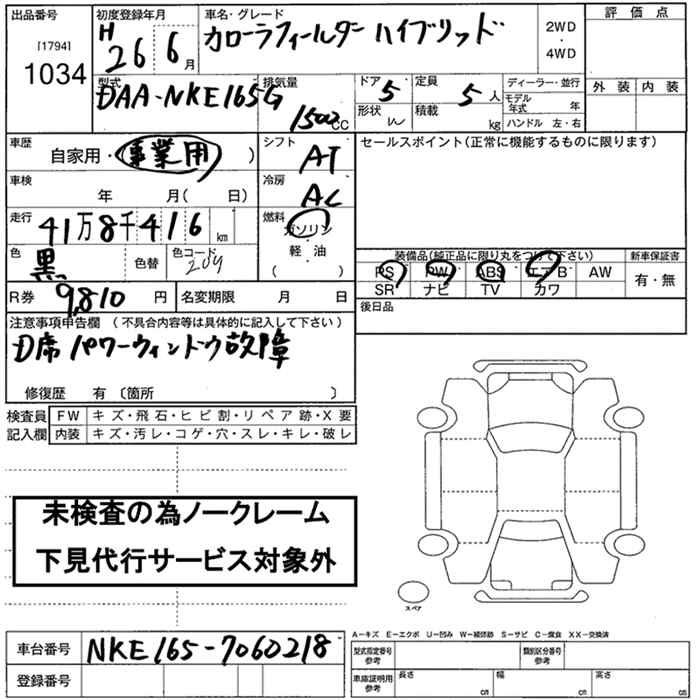 出品番号
[1794]
1034
初度登録年月
H 26 6月
車名・グレード
カローラフィールダー ハイブリッド
2WD
・
4WD
評価点
外装 内装
型式
DAA-NKE165G
排気量
1500cc
ドア 5
形状 W
定員 5人
積載 kg
ディーラー・並行
モデル年式 年
ハンドル 左・右
車歴
自家用・事業用 )
シフト
AT
セールスポイント(正常に機能するものに限ります)
車検
年 月( 日)
冷房
AC
走行
41万8千416km
燃料
ガソリン
・
軽・油
( )
色
黒
色替
色コード
209
装備品(純正品に限り丸をつけて下さい)
新車保証書
PS PW ABS エアB AW
SR ナビ TV カワ
有・無
R券 9,810円
名変期限 月 日
後日品
注意事項申告欄(不具合内容等は具体的に記入して下さい)
D席 パワーウィンドウ故障
修復歴 有〔箇所 〕
検査員 FW キズ・飛石・ヒビ割・リペア跡・X要
記入欄 内装 キズ・汚レ・コゲ・穴・スレ・キレ・破レ
未検査の為ノークレーム
下見代行サービス対象外
スペア
A−キズ E−エクボ U−凹み W−補修跡 S−サビ C−腐食 XX−交換済
車台番号 NKE165-7060218
登録番号
型式指定番号
参考
類別区分番号
参考
車庫証明用
参考
長さ cm
幅 cm
高さ cm